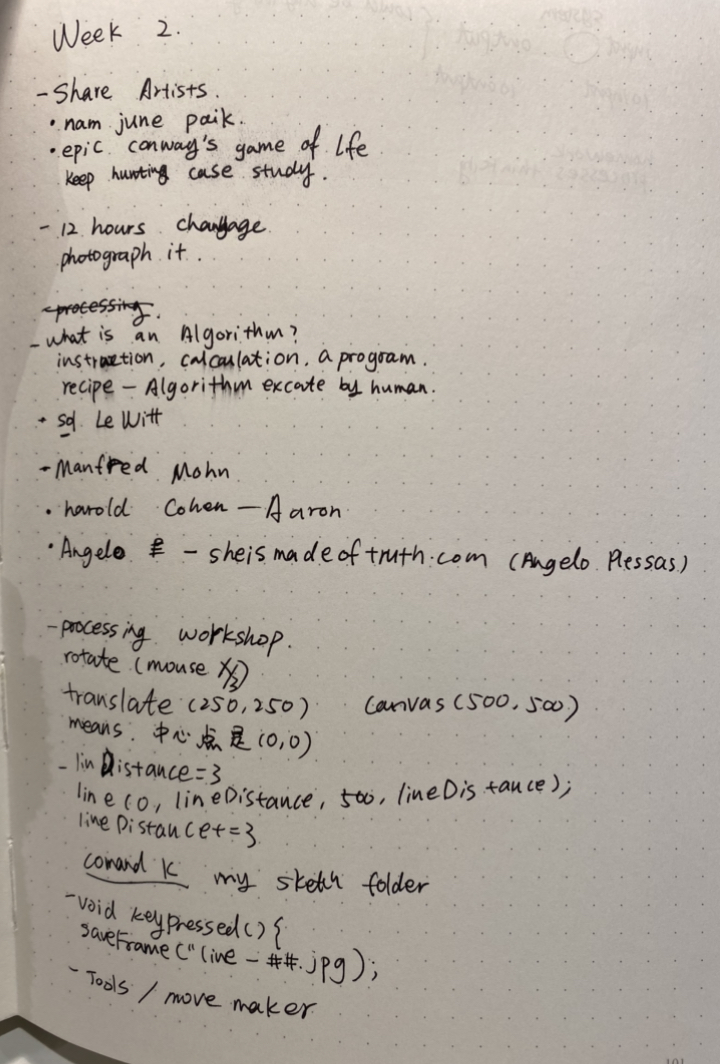 Week 2.
- Share Artists.
• nam june paik.
• epic conway's game of life
keep hunting case study.
- 12 hours
photograph it.
processing.
- what is an Algorithm?
instruction, calculation, a program.
recipe - Algorithm excute by human.
• sol Le Witt
- Manfred Mohn
• harold Cohen — Aaron
• Angelo - sheismadeoftruth.com (Angelo Plessas)
- processing workshop.
rotate (mouse X/2)
translate (250,250) Canvas (500,500)
means. 中心点是(0,0)
- lin Distance=3
line (0, lineDistance, 500, lineDistance);
line Distance+=3
comand K my sketch folder
- void keyPressed() {
saveFrame ("line - ##.jpg);
- Tools / move maker